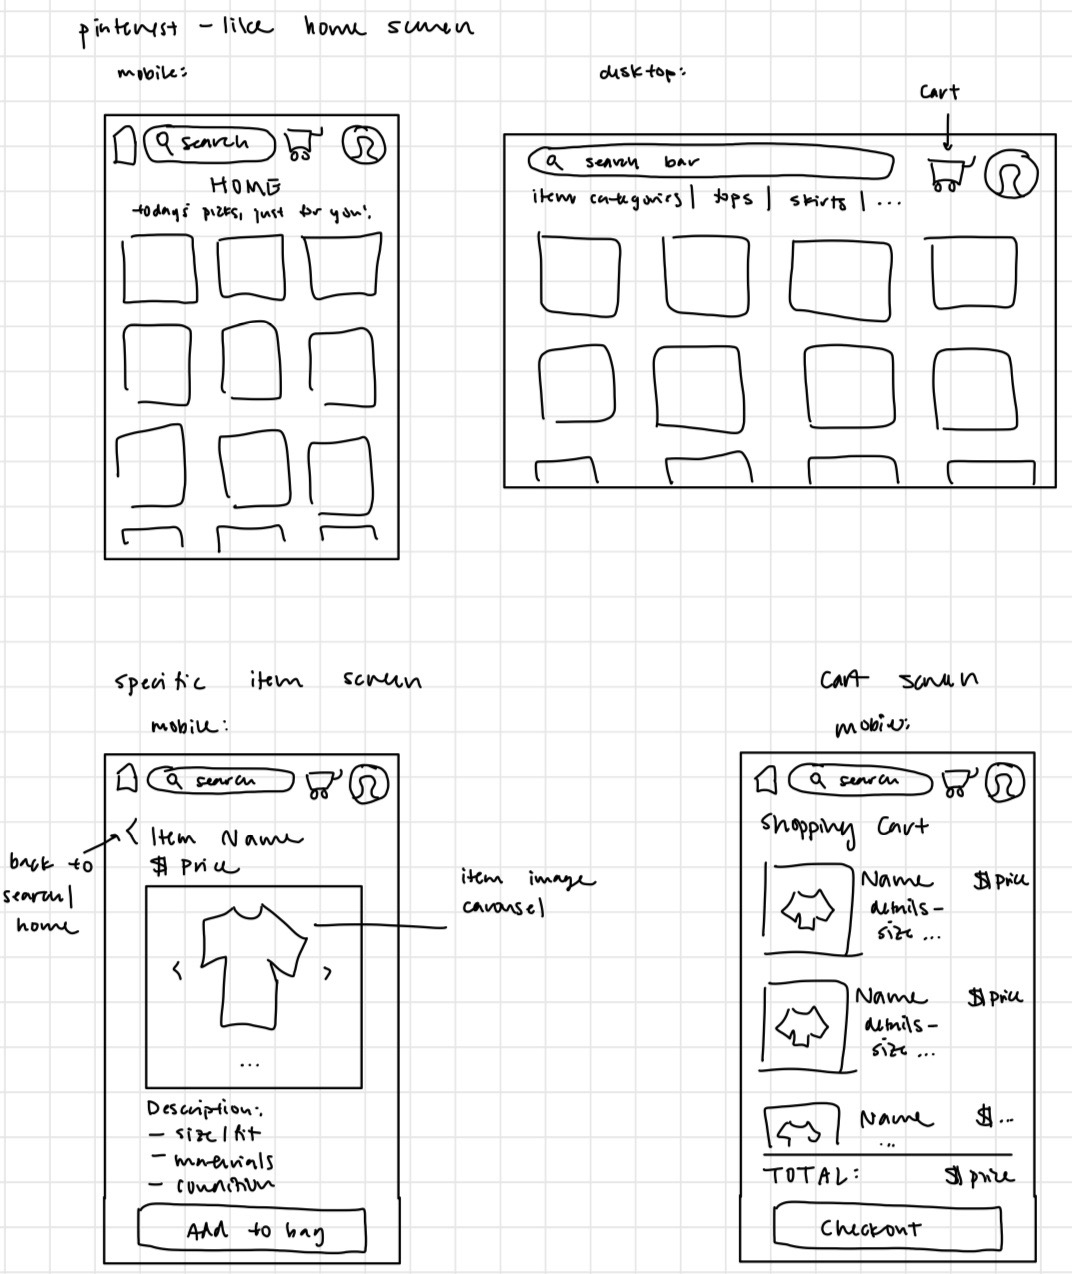 pinterest - like home screen
mobile:
desktop:
cart
search
HOME
todays picks, just for you!
search bar
item categories | tops | skirts | ...
specific item screen
mobile:
search
< Item Name
$ Price
back to
search/
home
item image
carousel
< >
...
Description:
- size/fit
- materials
- condition
Add to bag
cart screen
mobile:
search
Shopping Cart
Name $ price
details -
size ...
Name $ price
details -
size ...
Name $...
...
TOTAL: $ price
Checkout